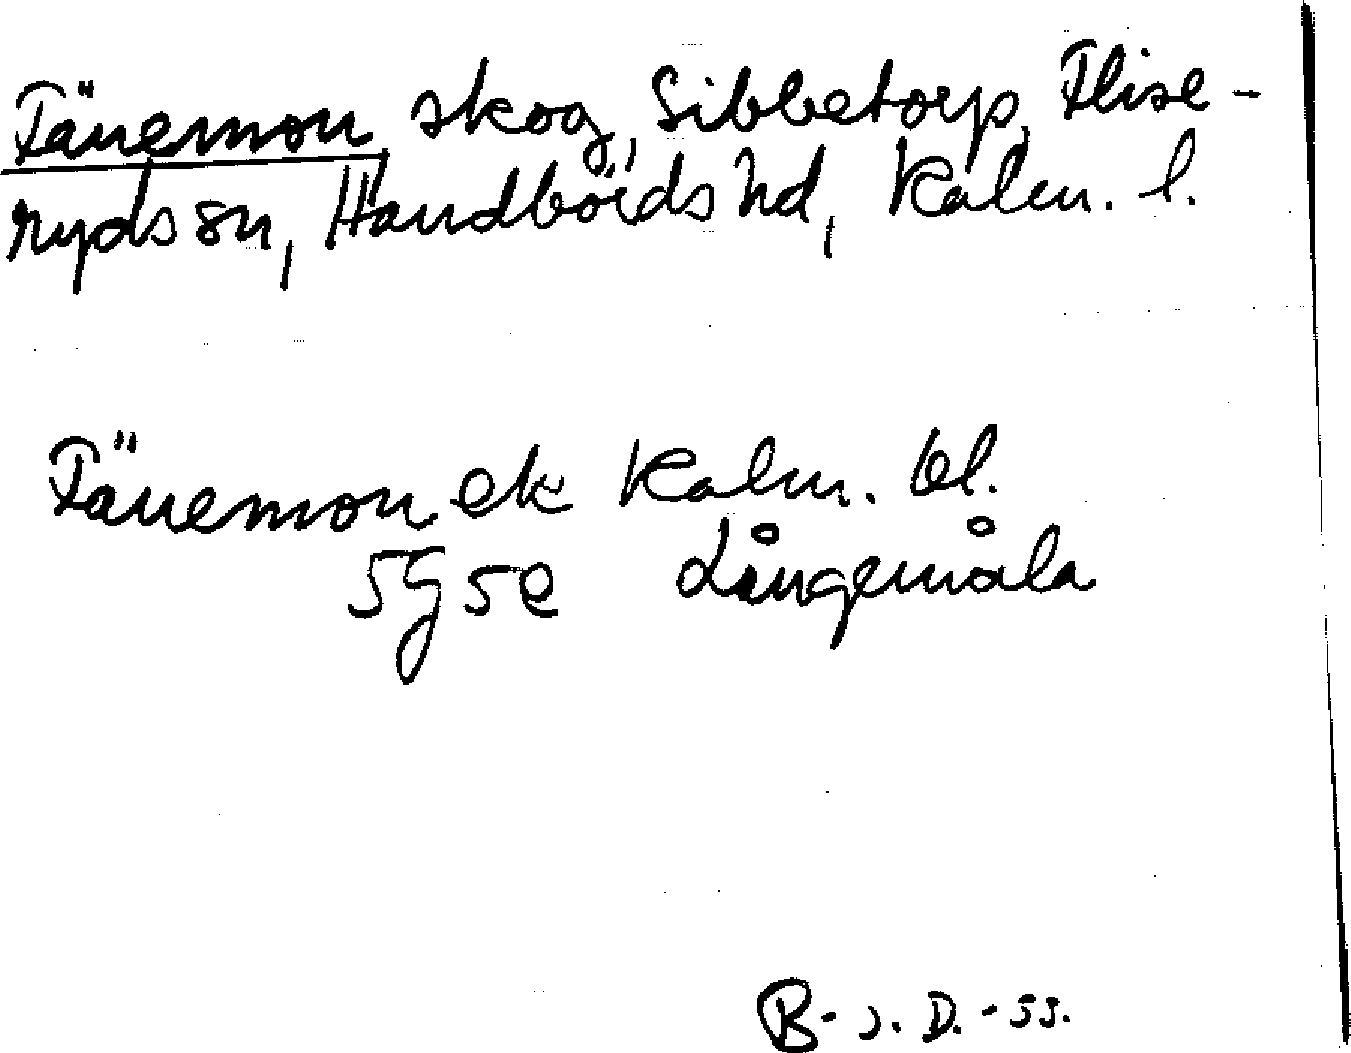 Tänemon, skog, Sibbetorp, Flise-
ryds sn, Handbörds hd, Kalm. l.
Tänemon ek Kalm. bl.
5g5e Långemåla
B-J. D. -53.